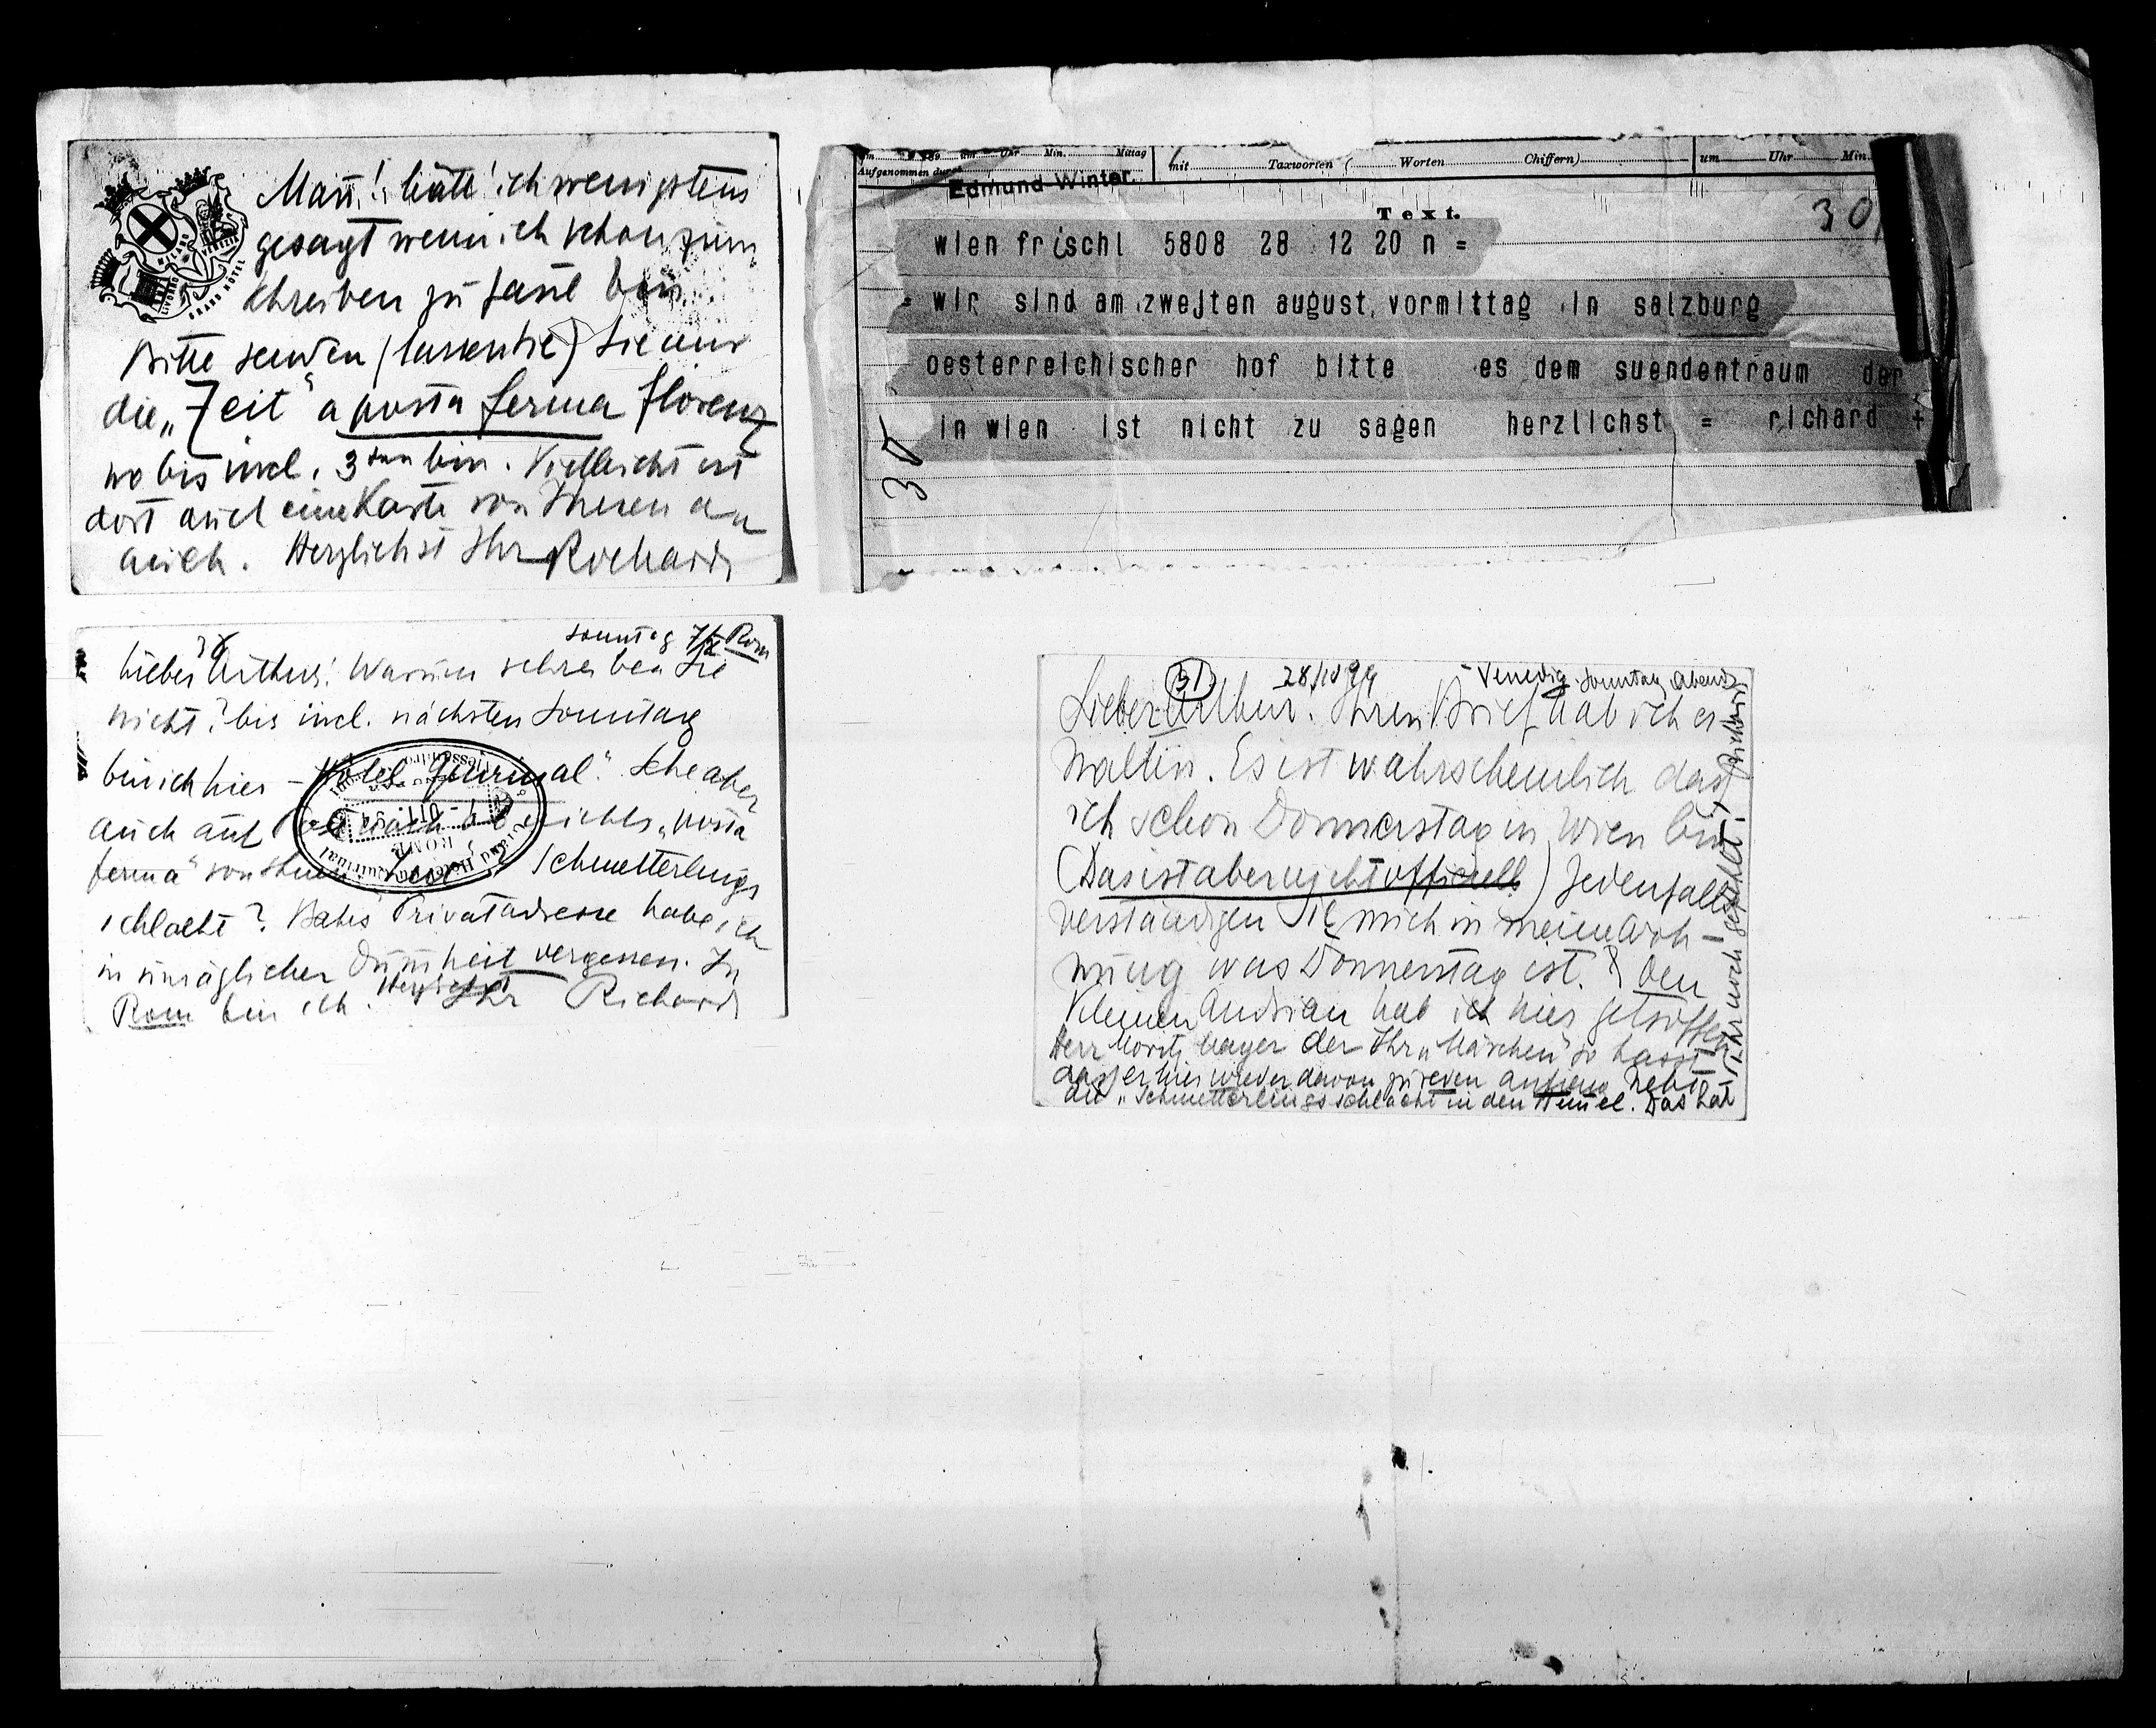 MILANO
VENEZIA
LIVORNO
GRAND HÔTEL
hätte ich wenigstens
gesagt wenn ich schon zum
schreiben zu faul bin.
Bitte senden (lassen Sie) Sie mir
die „Zeit“ a posta ferma Florenz
wo bis incl. 3ten bin. Vielleicht ist
dort auch eine Karte von Ihnen an
mich. Herzlichst Ihr Richard
Aufgenommen durch
Uhr Min. Mittag
mit Taxworten ( Worten Chiffern)
um Uhr Min.
Edmund Winter.
Text.
30
wien frischl 5808 28 12 20 n =
= wir sind am zweiten august vormittag in salzburg
oesterreichischer hof bitte es dem suendentraum der
in wien ist nicht zu sagen herzlichst = richard +
30
Sonntag 7/X Rom
Lieber Arthur! Warum schreiben Sie
nicht? bis incl. nächsten Sonntag
bin ich hier – Hotel Quirinal. Sehe aber
auch auf
nichts „posta
ferma“ von Ihnen
Schmetterlings
schlacht? Bahrs Privatadresse habe ich
in unsäglicher Dummheit vergessen. In
Rom bin ich. Herzlichst Ihr Richard
Grand Hotel du Quirinal
ROME
31.
28/10 94
– Venedig. Sonntag Abends
Lieber Arthur. Ihren Brief hab ich er-
halten. Es ist wahrscheinlich dass
ich schon Donnerstag in Wien bin
(Das ist aber nicht officiell) Jedenfalls
verständigen Sie mich in meine Woh-
nung was Donnerstag ist. Den
kleinen Andrian hab ich hier getroffen
Herr Moritz Mayer der Ihr „Märchen“ so hasst
dass er hier wieder davon zu reden anfieng hebt
die „Schmetterlingsschlacht in den Himmel. Das hat
Ihr noch gefehlt! Richard